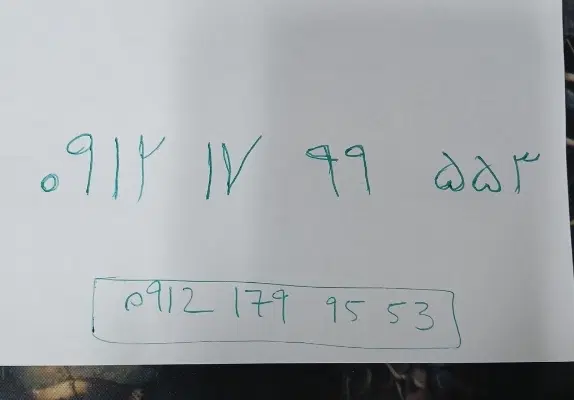 ۰۹۱۲ ۱۷ ۹۹ ۵۵۳
0912 179 95 53